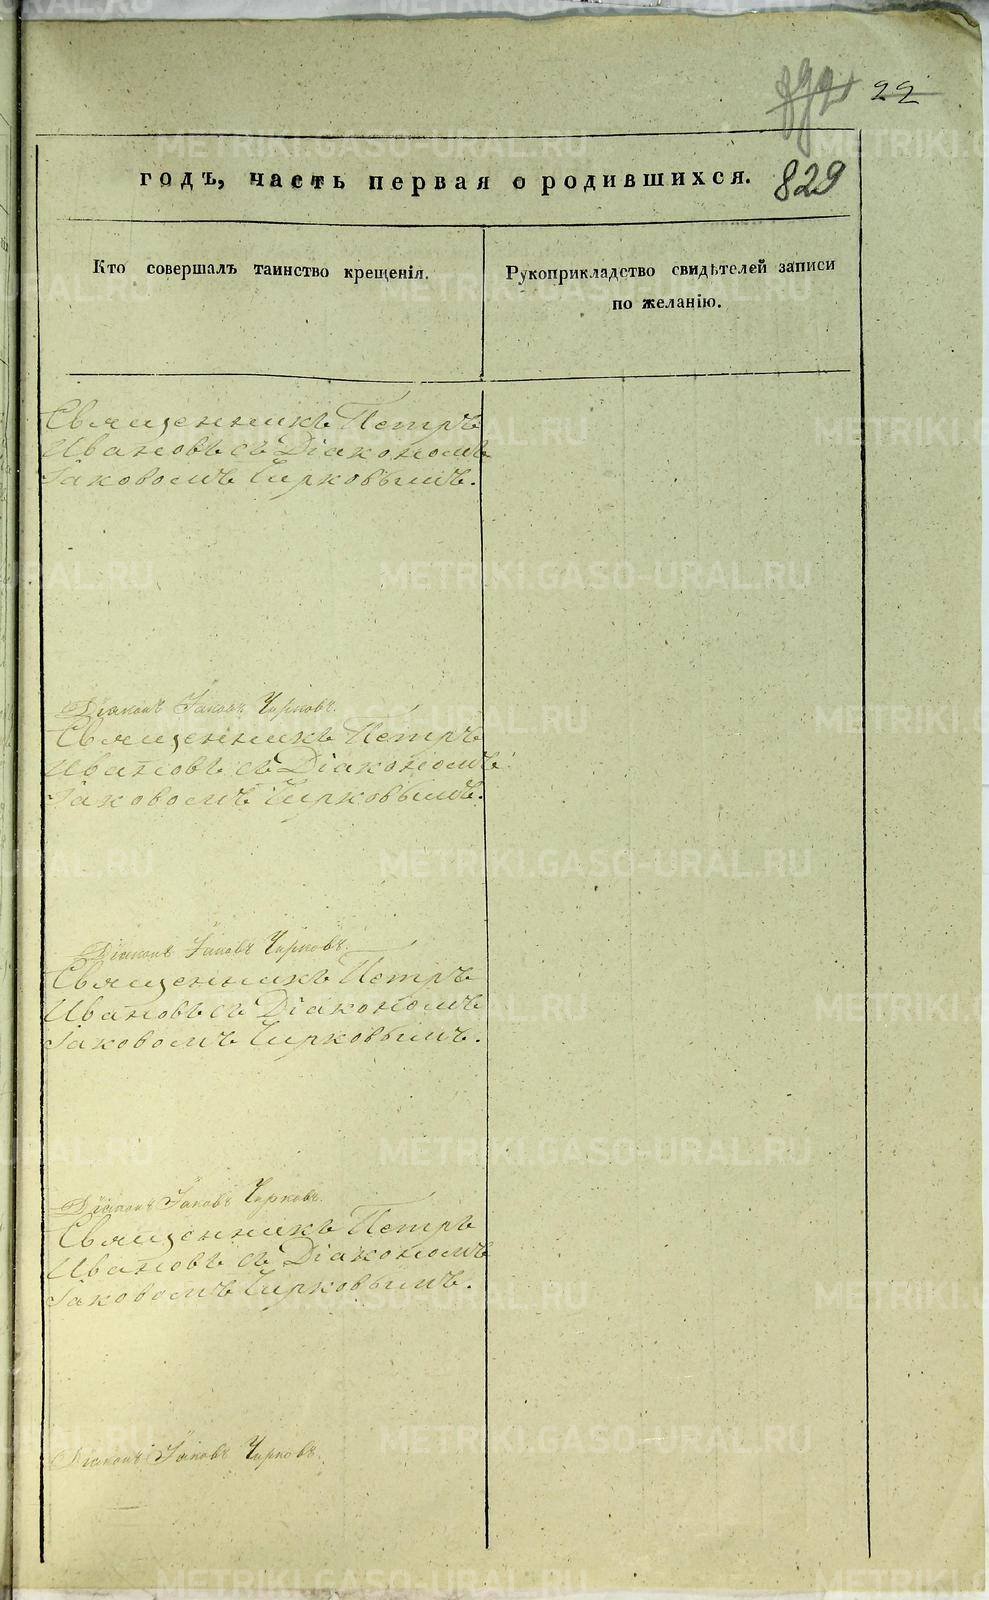 22
829
годъ, часть первая о родившихся.
Кто совершалъ таинство крещенія.
Рукоприкладство свидѣтелей записи
по желанію.
Священникъ Петръ
Ивановъ съ Діакономъ
Іаковомъ Чирковымъ.
Діаконъ Іаковъ Чирковъ.
Священникъ Петръ
Ивановъ съ Діакономъ
Іаковомъ Чирковымъ.
Діаконъ Іаковъ Чирковъ.
Священникъ Петръ
Ивановъ съ Діакономъ
Іаковомъ Чирковымъ.
Діаконъ Іаковъ Чирковъ.
Священникъ Петръ
Ивановъ съ Діакономъ
Іаковомъ Чирковымъ.
Діаконъ Іаковъ Чирковъ.
METRIKI.GASO-URAL.RU